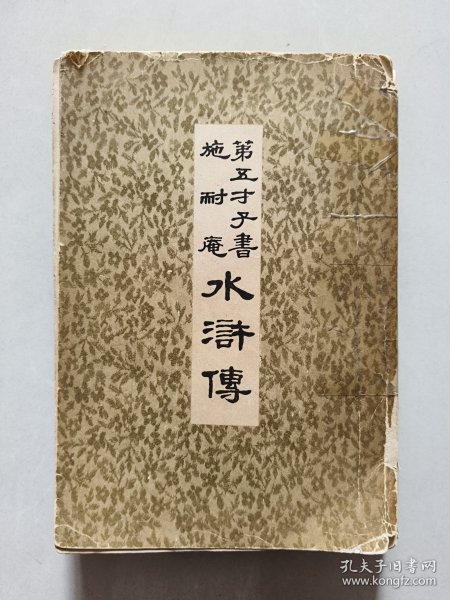 第五才子書
施耐庵
水滸傳
孔夫子旧书网
www.kongfz.com